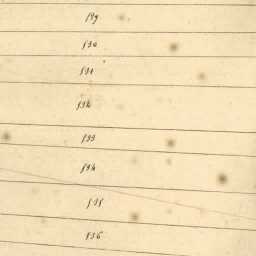 529
530
531
532
533
534
535
536